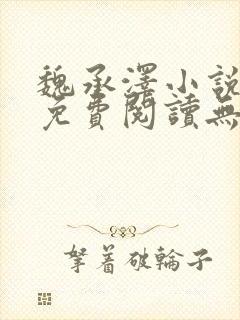 魏承澤小說
免費閱讀無
拏着破輪子